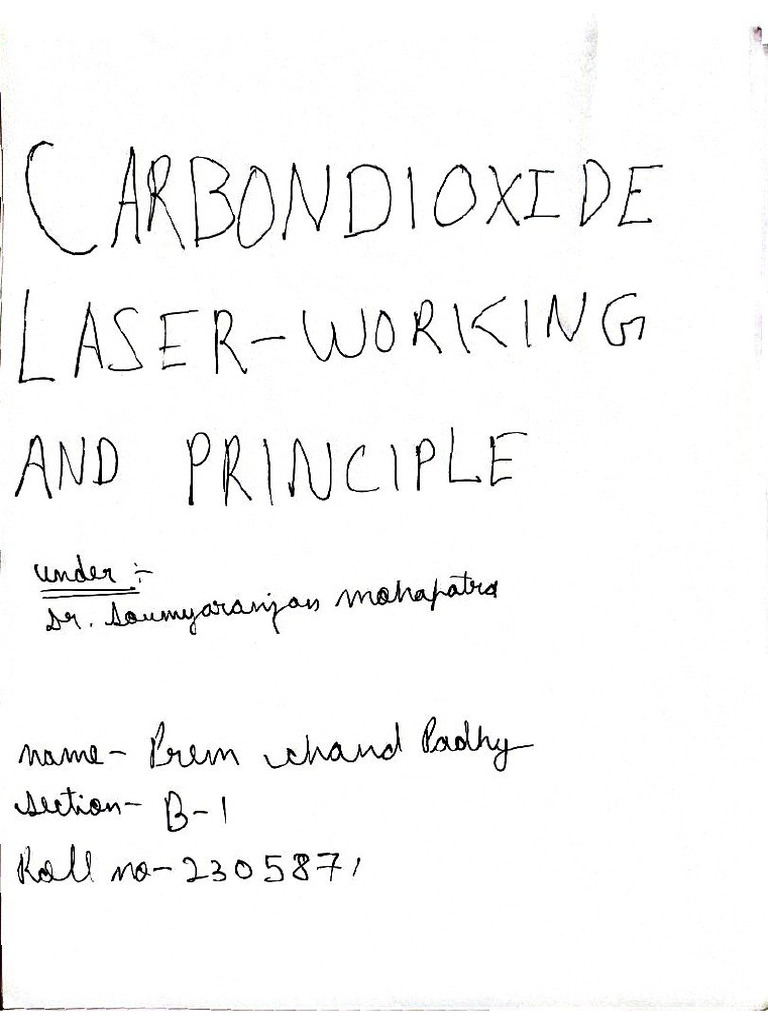 CARBONDIOXIDE
LASER-WORKING
AND PRINCIPLE
under :-
Dr. Soumyaranjan Mohapatra
name- Prem chand Padhy
section- B-1
Roll no- 2305871